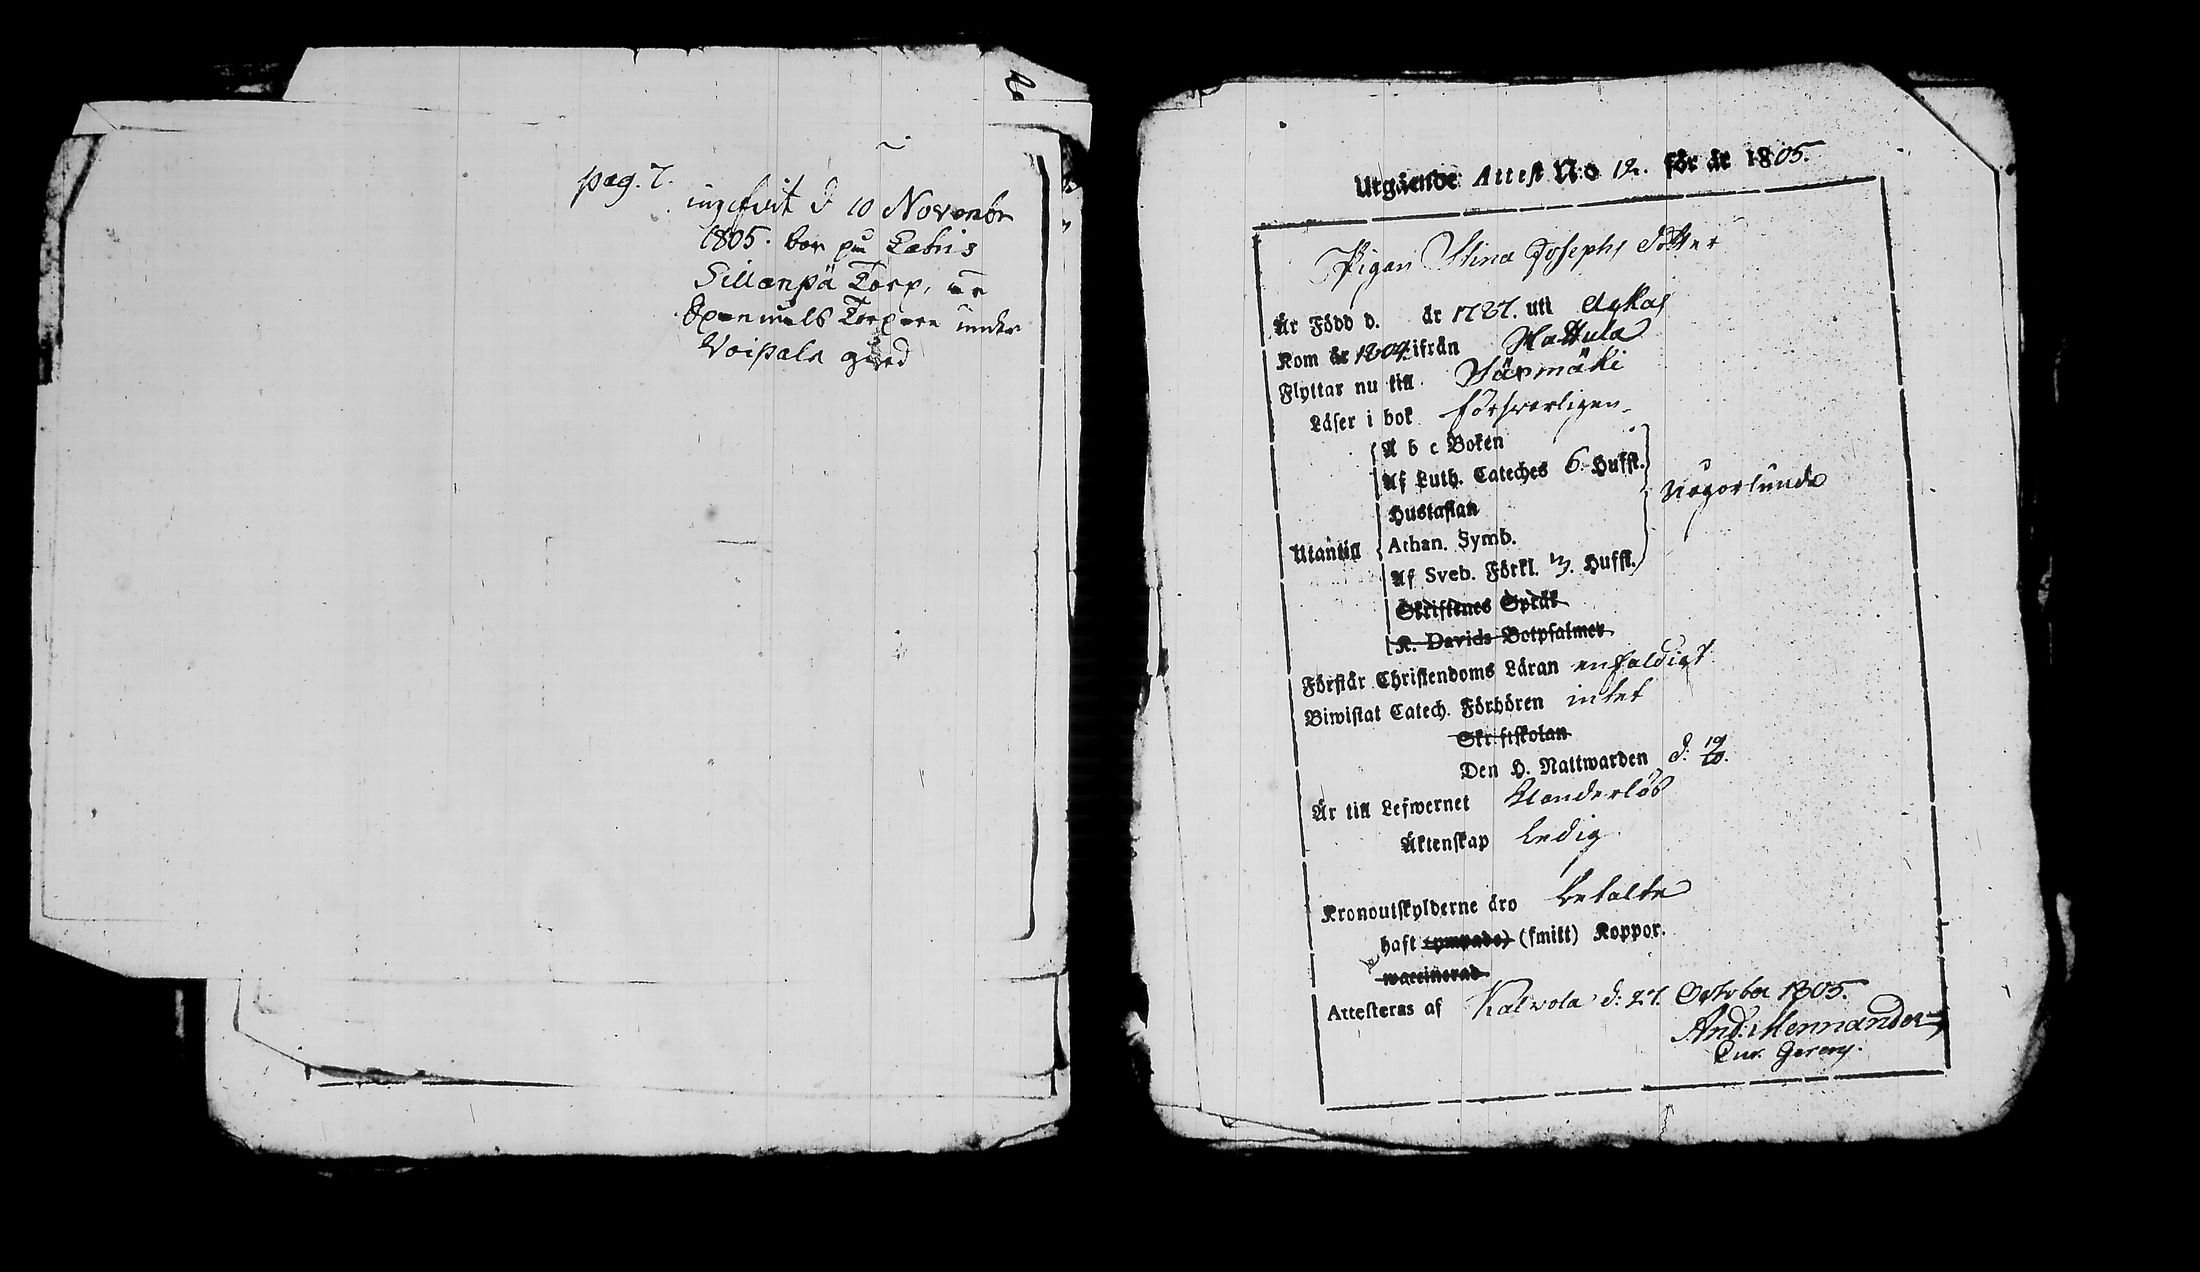 pag. 7.
ingifvit d 10 Novembr
1805. bor på Labis
Sillanpä Torp, är
under
Voipala gård
Utgående Attest No 12. för år 1805.
Pigan Stina Josephs dotter
Är Född d. år 1787. uti Ackas
Kom år 1804. ifrån Hattula
Flyttar nu till Säxmäki
Läser i bok försvarligen
A b c Boken
Af Luth. Cateches 6. Hufst.
någorlunda
Hustaflan
Utantill
Athan. Symb.
Af Sveb. Förkl. 3. Hufst.
Skriftenes Språk
K. Davids Botpsalmer
Förstår Christendoms Läran enfaldigt
Biwistat Catech. Förhören intet
Skriftskolan
Den H. Nattwarden d: 19/10.
Är till Lefwernet Klanderlös
Äktenskap Ledig
Kronoutskylderne äro betalte
haft (smitt) Koppor.
waccinerad
Attesteras af Kalvola d: 27. October 1805.
And: Mennander